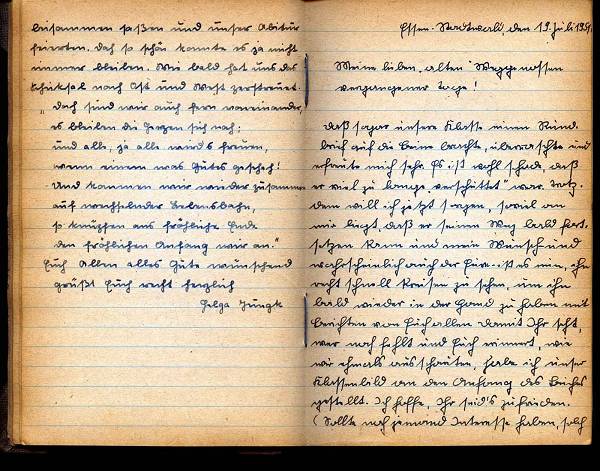 beisammen saßen und unser Abitur
feierten. Doch so schön konnte es ja nicht
immer bleiben. Wie bald hat uns das
Schicksal nach Ost und West zerstreut.
„Doch sind wir auch fern voneinander,
es bleiben die Herzen sich nah;
und alle, ja alle wird's freuen,
wenn einem was Gutes geschah!
Und kommen wir wieder zusammen
auf wechselnder Lebensbahn,
so knüpfen ans fröhliche Ende
den fröhlichen Anfang wir an."
Euch Allen alles Gute wünschend
grüßt Euch recht herzlich
Helga Jungk
Essen-Stadtwald, den 19. Juli
Meine lieben „alten" Weggenossen
vergangener Tage!
Daß sogar unsere Klasse einen Rund-
brief auf die Beine brachte, überraschte und
erfreute mich sehr. Es ist wohl schade, daß
er viel zu lange „verschüttet" war. Trotz-
dem will ich jetzt sorgen, soviel an
mir liegt, daß er seinen Weg bald fort-
setzen kann und mein Wunsch und
wahrscheinlich auch der Eure ist es nun, ihn
recht schnell kreisen zu sehen, um ihn
bald wieder in der Hand zu haben mit
Berichten von Euch allen. Damit Ihr seht,
wer noch fehlt und Euch erinnert, wie
wir ehmals ausschauten, habe ich unser
Klassenbild an den Anfang des Buches
gestellt. Ich hoffe, Ihr seid's zufrieden.
(Sollte noch jemand Interesse haben, solch